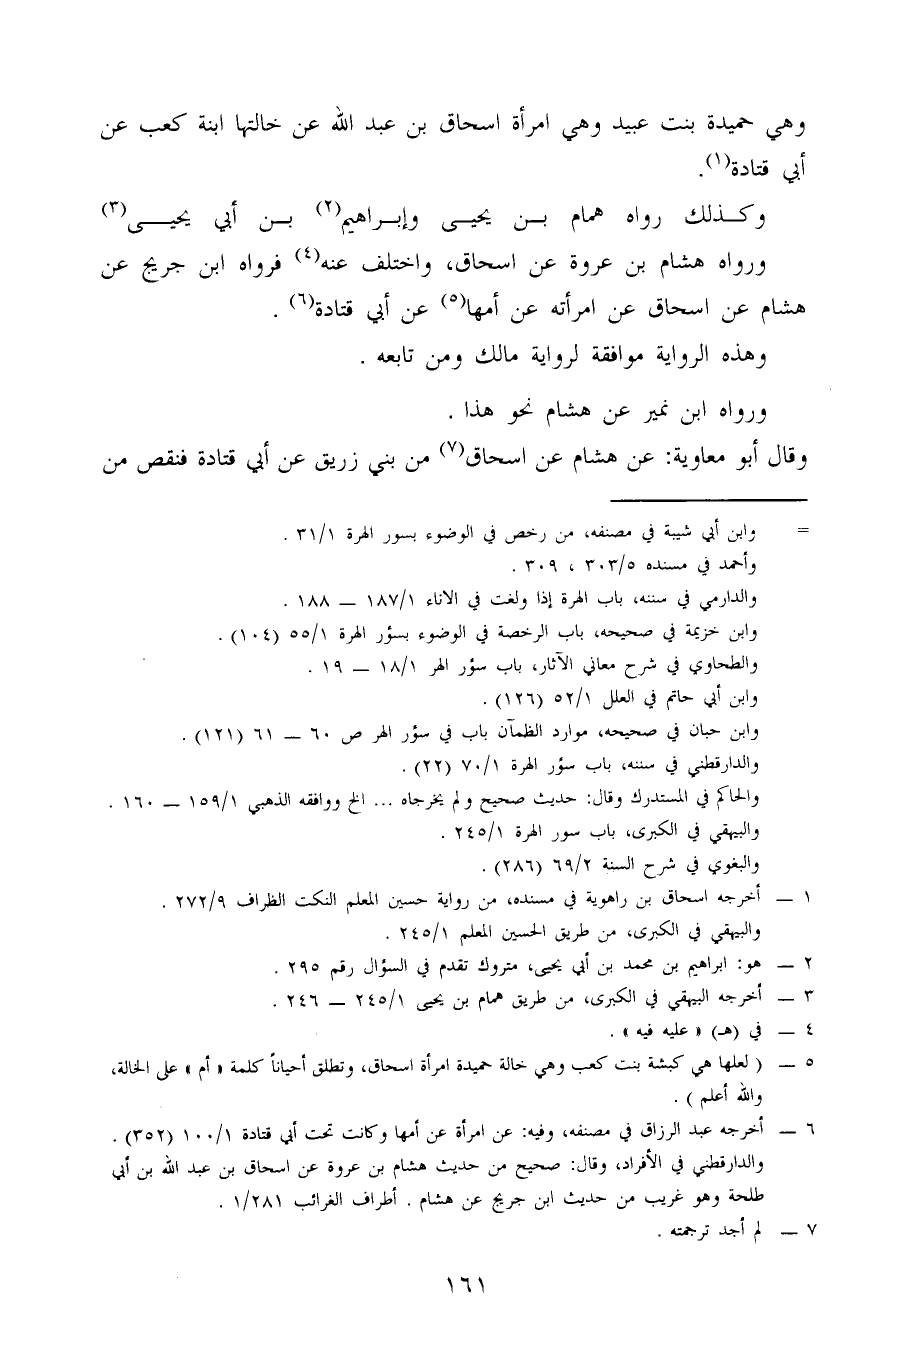 وهي حميدة بنت عبيد وهي امرأة اسحاق بن عبد الله عن خالتها ابنة كعب عن
أبي قتادة(١).
وكذلك رواه همام بن يحيى وإبراهيم(٢) بن أبي يحيى(٣)
ورواه هشام بن عروة عن اسحاق، واختلف عنه(٤) فرواه ابن جريج عن
هشام عن اسحاق عن امرأته عن أمها(٥) عن أبي قتادة(٦) .
وهذه الرواية موافقة لرواية مالك ومن تابعه .
ورواه ابن نمير عن هشام نحو هذا .
وقال أبو معاوية: عن هشام عن اسحاق(٧) من بني زريق عن أبي قتادة فنقص من
= وابن أبي شيبة في مصنفه، من رخص في الوضوء بسور الهرة ٣١/١ .
وأحمد في مسنده ٣٠٣/٥ ، ٣٠٩ .
والدارمي في سننه، باب الهرة إذا ولغت في الاناء ١٨٧/١ — ١٨٨ .
وابن خزيمة في صحيحه، باب الرخصة في الوضوء بسؤر الهرة ٥٥/١ (١٠٤) .
والطحاوي في شرح معاني الآثار، باب سؤر الهر ١٨/١ — ١٩ .
وابن أبي حاتم في العلل ٥٢/١ (١٢٦) .
وابن حبان في صحيحه، موارد الظمآن باب في سؤر الهر ص ٦٠ — ٦١ (١٢١) .
والدارقطني في سننه، باب سؤر الهرة ٧٠/١ (٢٢) .
والحاكم في المستدرك وقال: حديث صحيح ولم يخرجاه ... الخ ووافقه الذهبي ١٥٩/١ — ١٦٠ .
والبيهقي في الكبرى، باب سور الهرة ٢٤٥/١ .
والبغوي في شرح السنة ٦٩/٢ (٢٨٦) .
١ — أخرجه اسحاق بن راهوية في مسنده، من رواية حسين المعلم النكت الظراف ٢٧٢/٩ .
والبيهقي في الكبرى، من طريق الحسين المعلم ٢٤٥/١ .
٢ — هو: ابراهيم بن محمد بن أبي يحيى، متروك تقدم في السؤال رقم ٢٩٥ .
٣ — أخرجه البيهقي في الكبرى، من طريق همام بن يحيى ٢٤٥/١ — ٢٤٦ .
٤ — في (هـ) « عليه فيه » .
٥ — ( لعلها هي كبشة بنت كعب وهي خالة حميدة امرأة اسحاق، وتطلق أحياناً كلمة « أم » على الخالة،
والله أعلم ) .
٦ — أخرجه عبد الرزاق في مصنفه، وفيه: عن امرأة عن أمها وكانت تحت أبي قتادة ١٠٠/١ (٣٥٢) .
والدارقطني في الأفراد، وقال: صحيح من حديث هشام بن عروة عن اسحاق بن عبد الله بن أبي
طلحة وهو غريب من حديث ابن جريج عن هشام . أطراف الغرائب ١/٢٨١ .
٧ — لم أجد ترجمته .
١٦١